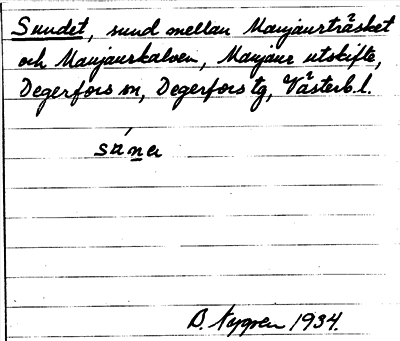 Sundet, sund mellan Maujaurträsket
och Maujaurkalven, Maujaur utskifte,
Degerfors sn, Degerfors tg, Västerb. l.
B. Nygren 1934.